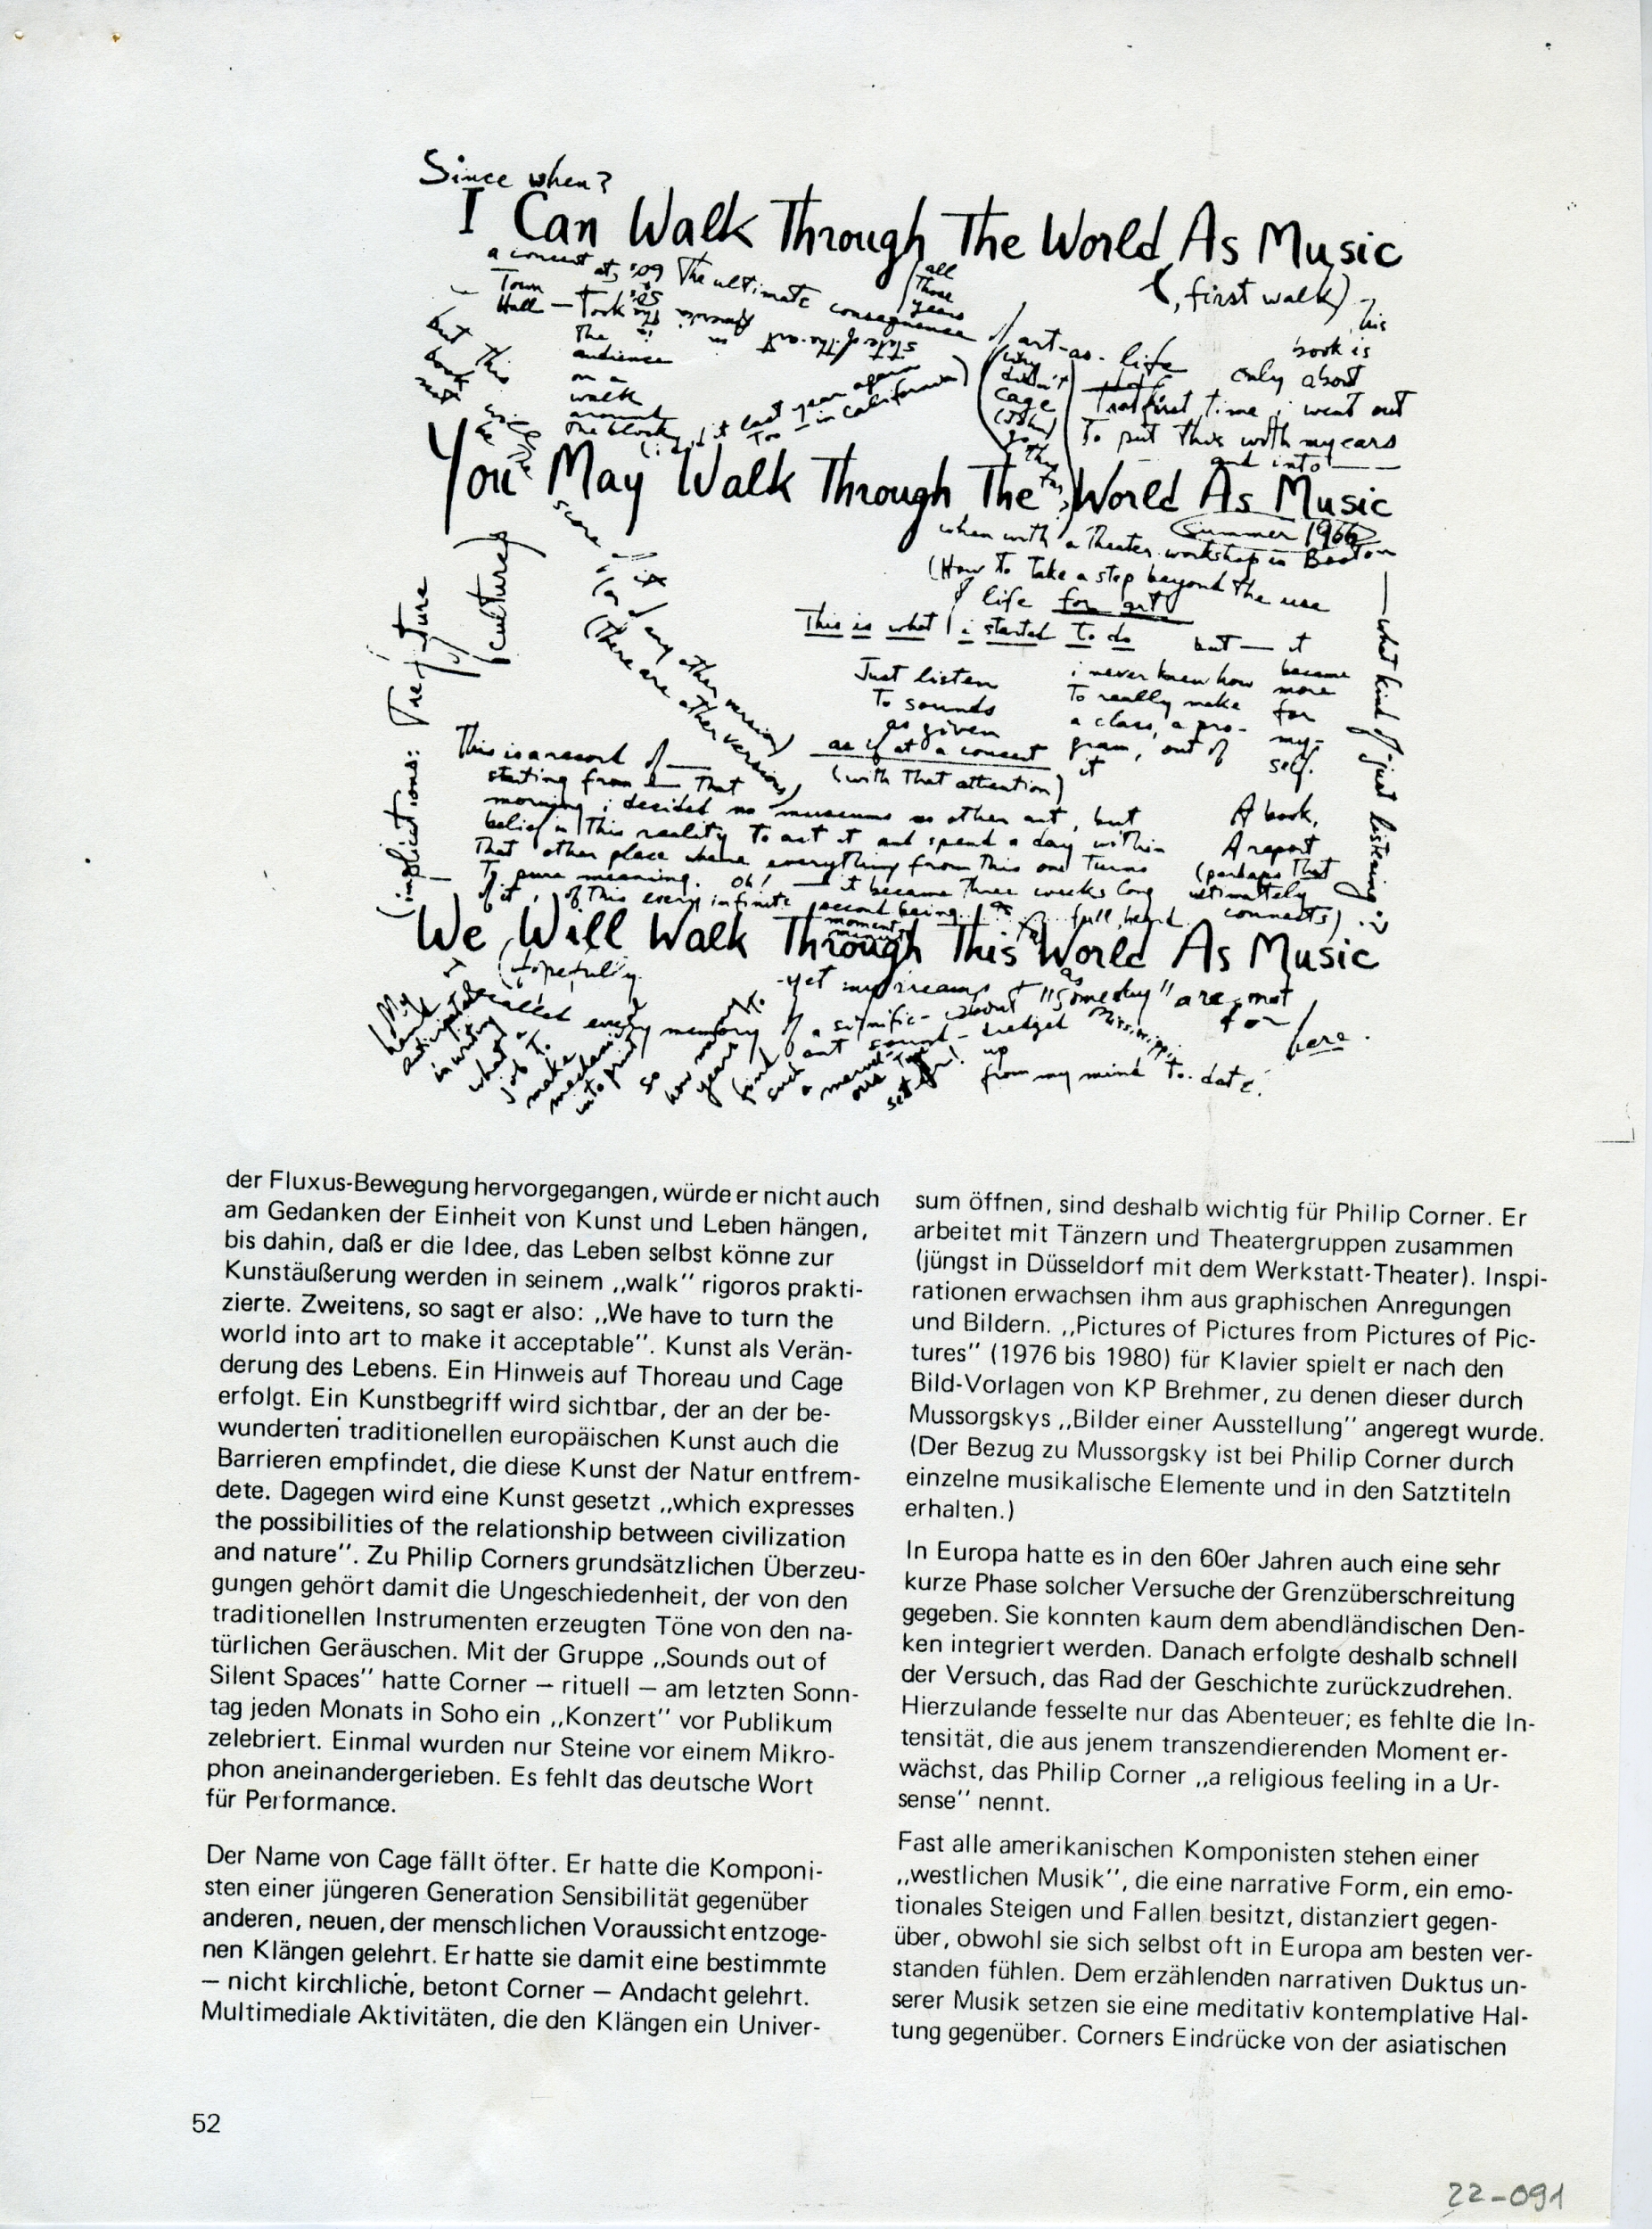 Since when?
I Can Walk Through The World As Music
(first walk)
a concert at
Town
Hall — Took
The
audience
on a
walk
around
the block
The ultimate consequence of art-as-life
all
Those
years
state-of-the-art in America in the
last year again
Too — in California)
(why
didn't
Cage
(John)
go
but This
book
This
book is
only about
That first time i went out
To put This with my ears
and into
You May Walk Through The World As Music
Summer 1966
when with a Theater workshop in Boston
(How To Take a step beyond The use
of life for art)
This is what i started To do
Just listen
To sounds
as given
as if at a concert
(with That attention)
but — it
became
more
for
my-
self.
i never knew how
To really make
a class, a pro-
gram, out of
it
— what kind of-just listening?
score of it
(or of any other version)
(There are other versions)
(implications: The future
of
(cultures)
This is a record of —
starting from — That
morning i decided no museums no other art, but
belief in This reality To act it and spend a day within
That other place where everything from This one Turns
To pure meaning. Oh! — it became Three weeks long
of it, of This every infinite second being
moment
minute
full, heard
A book,
A report
(perhaps That
ultimately
connects)
We Will Walk Through This World As Music
(hopefully
I recalled every memory of a signific-
ant sound — dredged
up
from my mind To date.
yet my dreams
as
about
"Someday" are not
for
here.
Mississippi
My
hand
anticipated
in writing
what a
job To
make
mechanical
into print
so
how many
years To
find
such
a marvel-
ous Type
set for!
der Fluxus-Bewegung hervorgegangen, würde er nicht auch
am Gedanken der Einheit von Kunst und Leben hängen,
bis dahin, daß er die Idee, das Leben selbst könne zur
Kunstäußerung werden in seinem ,,walk'' rigoros prakti-
zierte. Zweitens, so sagt er also: ,,We have to turn the
world into art to make it acceptable''. Kunst als Verän-
derung des Lebens. Ein Hinweis auf Thoreau und Cage
erfolgt. Ein Kunstbegriff wird sichtbar, der an der be-
wunderten traditionellen europäischen Kunst auch die
Barrieren empfindet, die diese Kunst der Natur entfrem-
dete. Dagegen wird eine Kunst gesetzt ,,which expresses
the possibilities of the relationship between civilization
and nature''. Zu Philip Corners grundsätzlichen Überzeu-
gungen gehört damit die Ungeschiedenheit, der von den
traditionellen Instrumenten erzeugten Töne von den na-
türlichen Geräuschen. Mit der Gruppe ,,Sounds out of
Silent Spaces'' hatte Corner — rituell — am letzten Sonn-
tag jeden Monats in Soho ein ,,Konzert'' vor Publikum
zelebriert. Einmal wurden nur Steine vor einem Mikro-
phon aneinandergerieben. Es fehlt das deutsche Wort
für Performance.
Der Name von Cage fällt öfter. Er hatte die Komponi-
sten einer jüngeren Generation Sensibilität gegenüber
anderen, neuen, der menschlichen Voraussicht entzoge-
nen Klängen gelehrt. Er hatte sie damit eine bestimmte
— nicht kirchliche, betont Corner — Andacht gelehrt.
Multimediale Aktivitäten, die den Klängen ein Univer-
sum öffnen, sind deshalb wichtig für Philip Corner. Er
arbeitet mit Tänzern und Theatergruppen zusammen
(jüngst in Düsseldorf mit dem Werkstatt-Theater). Inspi-
rationen erwachsen ihm aus graphischen Anregungen
und Bildern. ,,Pictures of Pictures from Pictures of Pic-
tures'' (1976 bis 1980) für Klavier spielt er nach den
Bild-Vorlagen von KP Brehmer, zu denen dieser durch
Mussorgskys ,,Bilder einer Ausstellung'' angeregt wurde.
(Der Bezug zu Mussorgsky ist bei Philip Corner durch
einzelne musikalische Elemente und in den Satztiteln
erhalten.)
In Europa hatte es in den 60er Jahren auch eine sehr
kurze Phase solcher Versuche der Grenzüberschreitung
gegeben. Sie konnten kaum dem abendländischen Den-
ken integriert werden. Danach erfolgte deshalb schnell
der Versuch, das Rad der Geschichte zurückzudrehen.
Hierzulande fesselte nur das Abenteuer; es fehlte die In-
tensität, die aus jenem transzendierenden Moment er-
wächst, das Philip Corner ,,a religious feeling in a Ur-
sense'' nennt.
Fast alle amerikanischen Komponisten stehen einer
,,westlichen Musik'', die eine narrative Form, ein emo-
tionales Steigen und Fallen besitzt, distanziert gegen-
über, obwohl sie sich selbst oft in Europa am besten ver-
standen fühlen. Dem erzählenden narrativen Duktus un-
serer Musik setzen sie eine meditativ kontemplative Hal-
tung gegenüber. Corners Eindrücke von der asiatischen
52
22-091